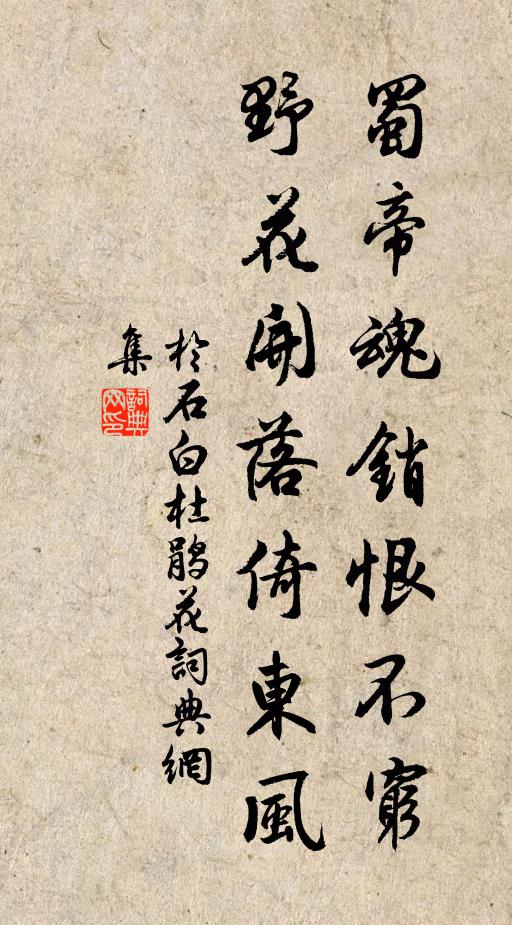 蜀帝魂銷恨不窮
野花開落倚東風
於石白杜鵑花詞典網
集
詞典網印